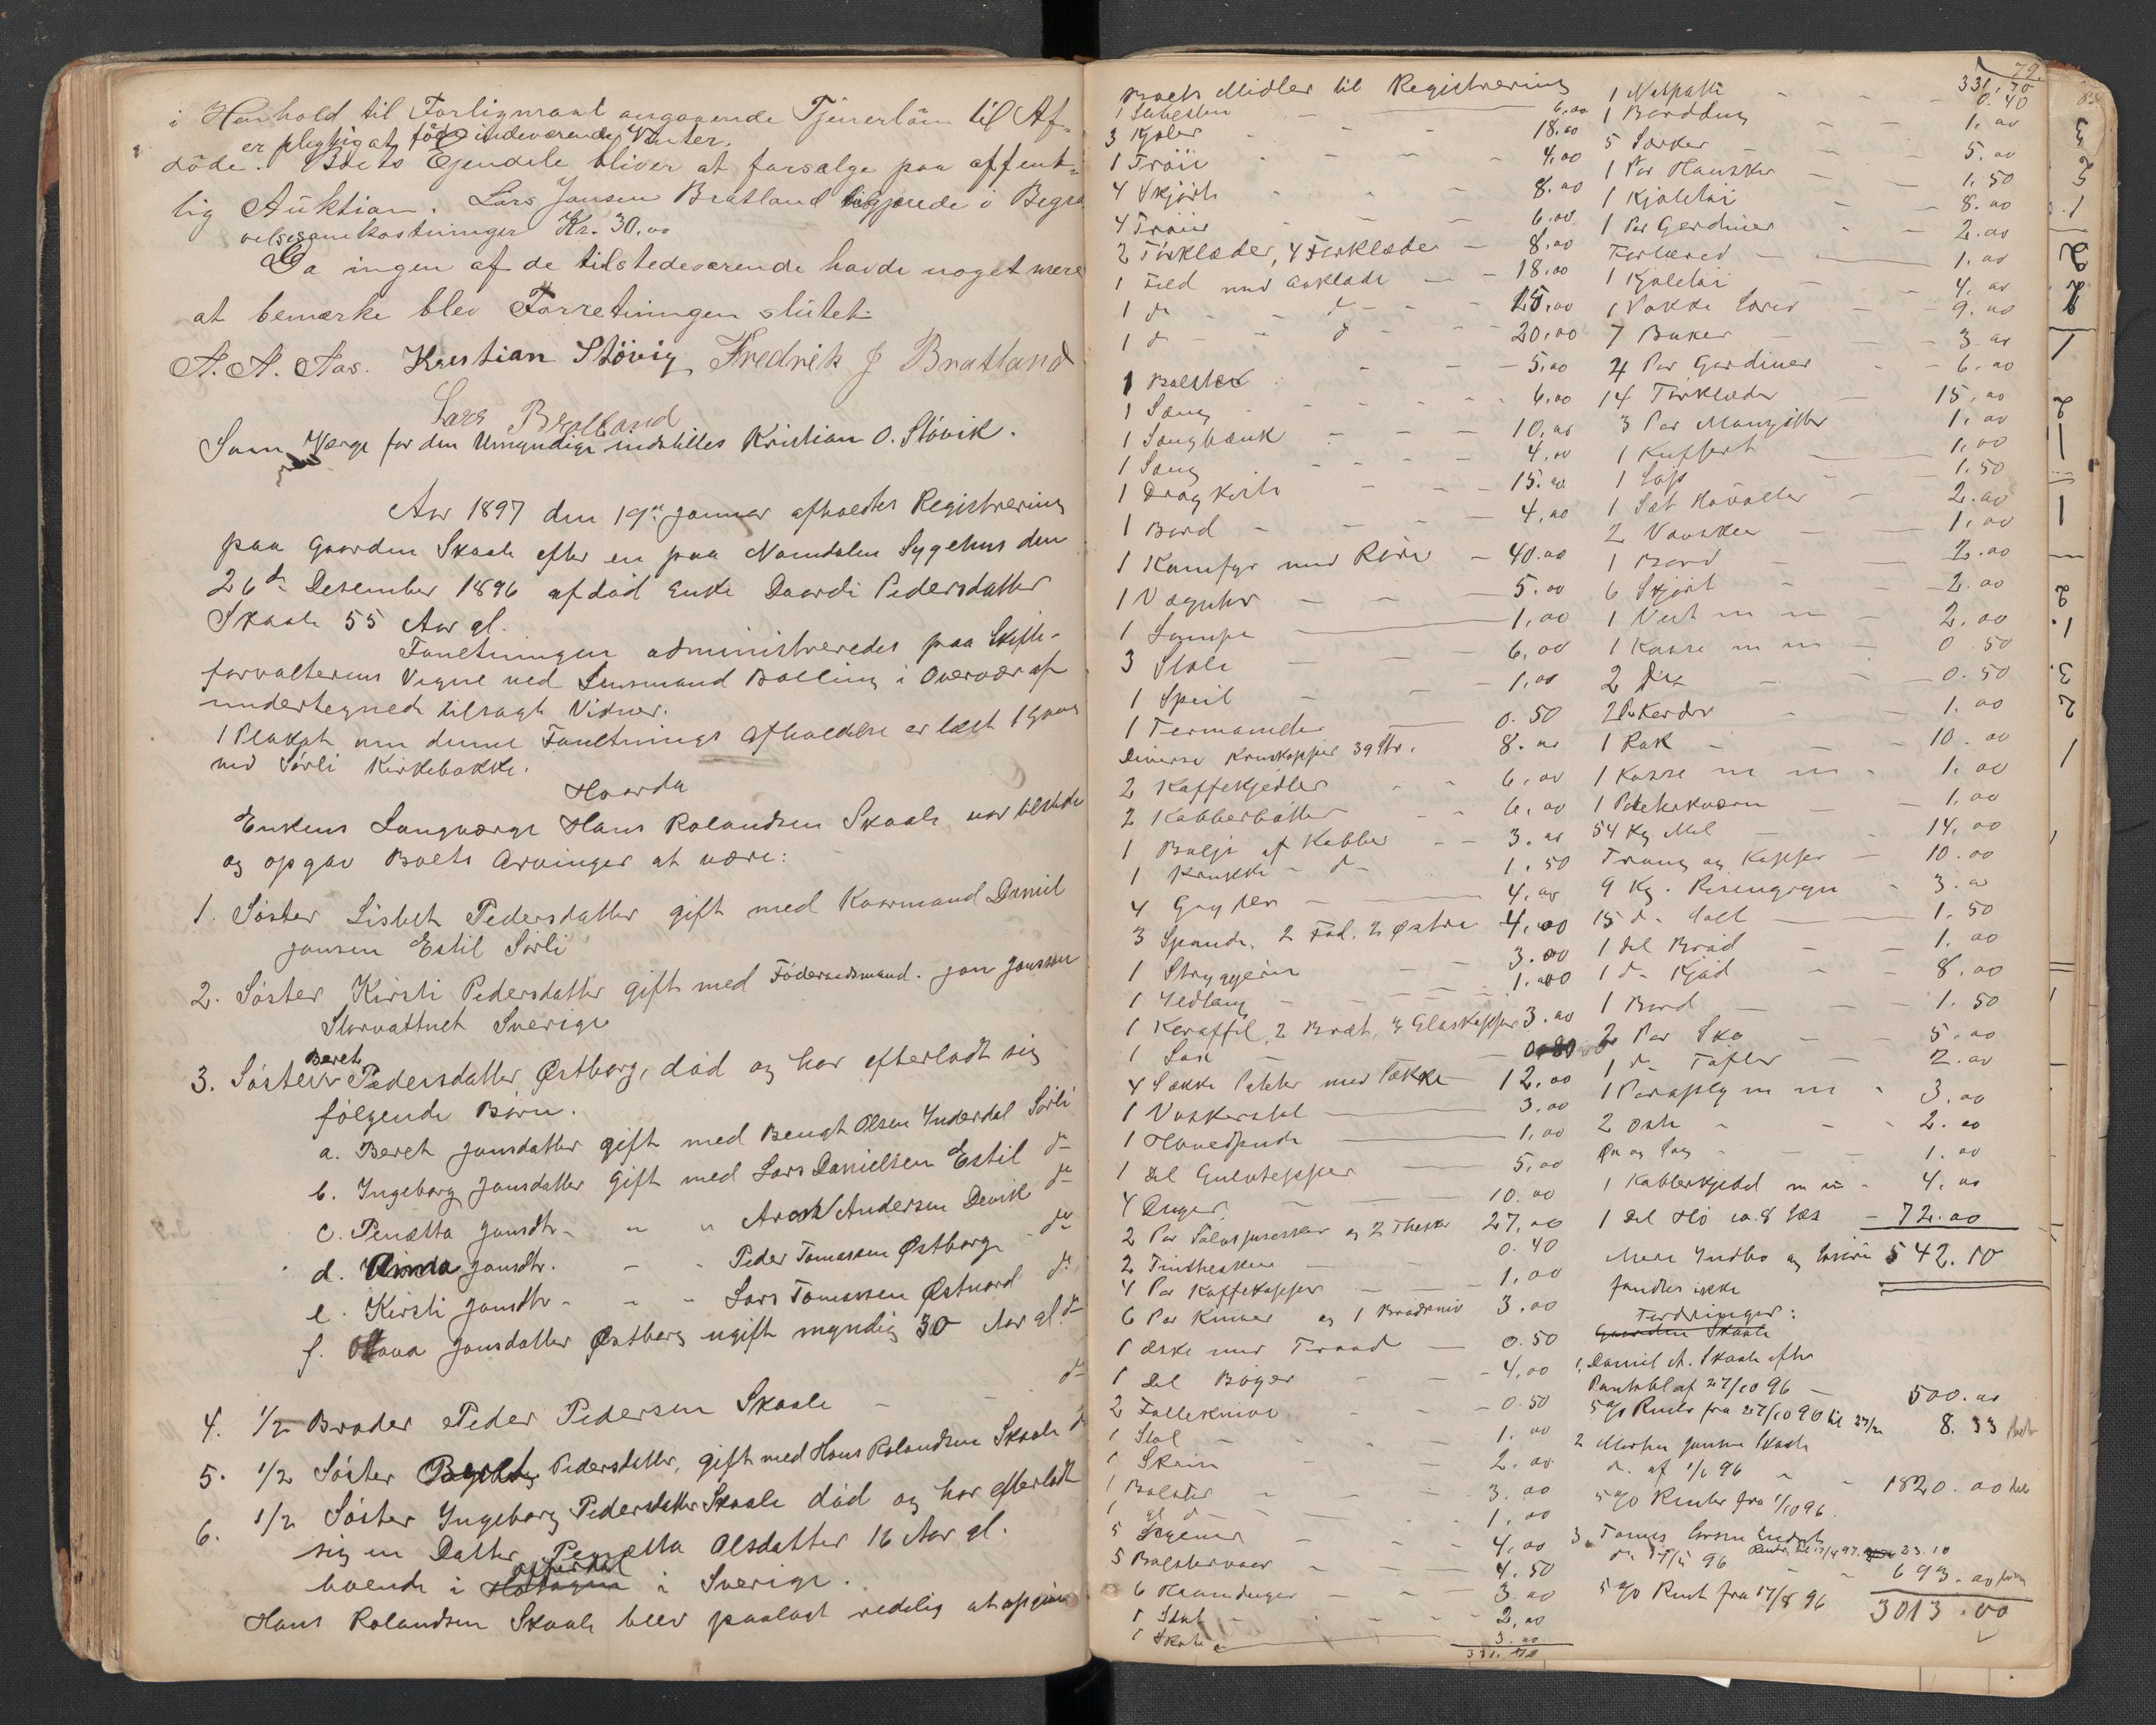 i Henhold til Forligmaal angaaende Tjenerløn til Af-
er pligtig at føde indeværende Vinter.
døde. Boets Ejendele bliver at forsælge paa offent-
lig Auktion. Lars Jonsen Bratland opgjorde i Begra-
velsesomkostninger Kr. 30.00
Da ingen af de tilstedeværende havde noget mere
at bemærke blev Forretningen sluttet.
A. A. Aas. Kristian Støvig Fredrik J Bratland
Lars Bratland
Som Værge for den Umyndige indstilles Kristian O. Støvik.
Aar 1897 den 19de Januar afholdtes Registrering
paa Gaarden Skaale efter en paa Namdalen Sygehus den
26de Desember 1896 afdød Enke Daardi Pedersdatter
Skaale 55 Aar gl.
Forretningen administreredes paa Skifte-
forvalterens Vegne ved Lensmand Bolling i Overvær af
undertegnede tilsagte Vidner.
1 Plakat om denne Forretnings Afholdelse er læst 1 Gang
ved Sørli Kirkebakke.
Hvorda
Enkens Laugværge Hans Rolandsen Skaale var tilstede
og opgav Boets Arvinger at være:
1. Søster Lisbet Pedersdatter gift med Kaarmand Daniel
Jonsen Estil Sørli
2. Søster Kirsti Pedersdatter gift med Føderaadsmand. Jon Jonsson
Storvattnet Sverige
3. Søster Beret Pedersdatter Østborg, død og har efterladt sig
følgende Børn.
a. Beret Jonsdatter gift med Bengt Olsen Inderdal Sørli
b. Ingeborg Jonsdatter gift med Lars Danielsen Estil d-
c. Penætta Jonsdtr. " " Andersen Devik d-
d. Jonsdtr. - - Peder Tomassen Østborg d-
e. Kirsti Jonsdtr. - - Lars Tomassen Østnord d-
f. Jonsdatter Østborg ugift myndig 30 Aar gl. d-
4. 1/2 Broder Peder Pedersen Skaale - - d-
5. 1/2 Søster Pedersdatter, gift med Hans Rolandsen Skaale d-
6. 1/2 Søster Ingeborg Pedersdatter Skaale død og har efterladt
sig en Datter Penætta Olsdatter 16 Aar gl.
boende i i Sverige.
Hans Rolandsen Skaale blev paalagt redelig at opgive
79.
Boets Midler til Registrering
6.00
3 Kjoler 18.00
1 Trøie 4.00
4 Skjørt 8.00
4 Trøier 6.00
2 Tørklæder, 4 Forklæder 8.00
1 Feld med Aaklæde 18.00
1 d- d- 15.00
1 d- d 20.00
1 Bolster 5.00
1 Sæng 6.00
1 Sængbænk 10.00
1 Sæng 4.00
1 Dragkiste 15.00
1 Bord 4.00
1 Komfyr med Rør 40.00
1 Væguhr 5.00
1 Lampe 1.00
3 Stole 6.00
1 Speil 1.00
1 Termometer 0.50
Diverse KrusKopper 39 Str. 8.00
2 Kaffekjedler 6.00
2 Kobberbøtter 6.00
1 Bolje af Kobber 3.00
1 Krukke d- 1.50
4 Gryder 4.00
3 Spande. 2 Fad. 2 Østre 4.00
1 Strygejern 3.00
1 Ildtang 1.00
1 Karaffel, 2 Bræt, 3 Glaskopper 3.00
1 Sax
4 Sække Poteter med Sække 12.00
1 Vaskerstol 3.00
1 Hovedpude 1.00
1 Del Gulvtepper 5.00
4 Duger 10.00
2 Par Sølvspiseskeer og 2 Theskeer 27.00
2 Tintheskeer 0.40
4 Par Kaffekopper 1.00
6 Par Kniver og 1 Brødkniv 3.00
1 Æske med Traad 0.50
1 Del Bøger 4.00
2 Foldeknive 0.50
1 Stol 1.00
1 Skrin 2.00
1 Bolster 3.00
1 gl d- 1.00
5 Lagener 4.00
5 Bolstervaar 4.50
6 Haanduger 3.00
1 2.00
1 3.00
331.70
331.70
1 Natpotte 0.40
1 Borddug 1.00
5 Særker 5.00
1 Par Hansker 1.50
1 Kjoletøi 8.00
1 Par Gardiner 2.00
Forlæred 1.00
1 Kjoletøi 4.00
9.00
7 Buker 3.00
4 Par Gardiner 6.00
14 Tørklæder 15.00
3 Par Manzjetter 1.00
1 Kuffert 1.00
1 1.50
1 Sæt Høvæller 2.00
2 1.00
1 Bord 2.00
6 Skjørt 2.00
1 Vest m m 2.00
1 Kasse m m 0.50
2 0.50
2 1.00
1 Rok 10.00
1 Kasse m m 1.00
1 1.00
54 Kg. Mel 14.00
Traug og Kopper 10.00
9 Kg. Risengryn 3.00
15 d- Salt 1.50
1 Del Brød 1.00
1 d- Kjød 8.00
1 Bord 1.50
2 Par Sko 5.00
1 d- Tøfler 2.00
1 Paraply m m 3.00
2 Oste 2.00
Øx og Sag 1.00
1 Kobberkjedel m m 4.00
1 Del Hø ca. 8 Læs 72.00
Mere Indbo og Løsøre 542.10
fandtes ikke
Fordringer:
Gaarden Skaale
1. Daniel A. Skaale efter
Pantobl af 27/10 96 500.00
5 % Renter fra 27/10 96 til 8.33
2 Jonsen Skaale
d. af 1/6 96 1820.00
5 % Renter fra 1/10 96.
3. Larsen
d. 17/5 96 23.10
693.00
5 % Rent fra 17/8 96 3013.00